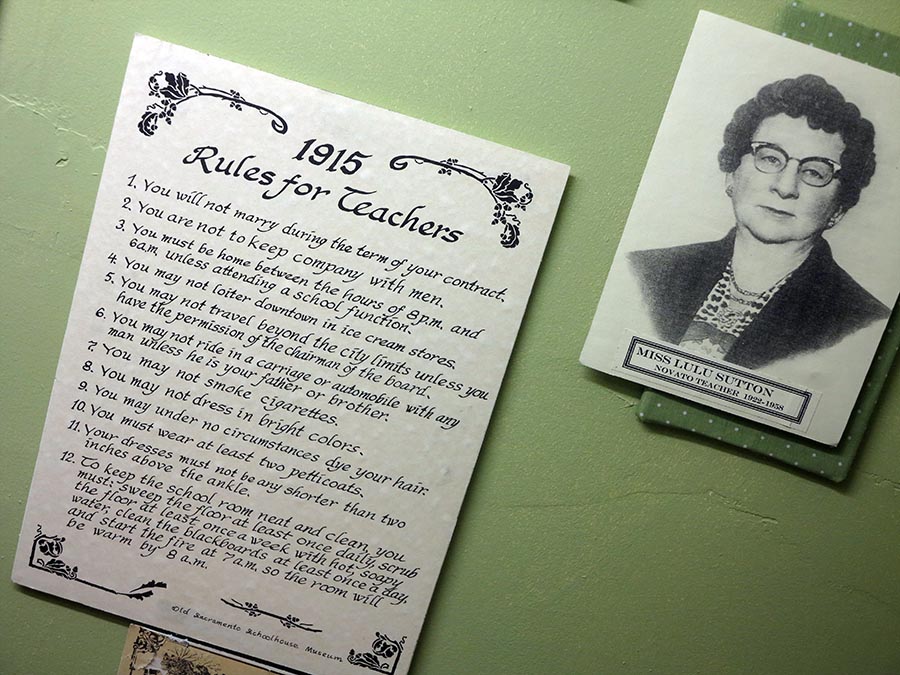 1915
Rules for Teachers
1. You will not marry during the term of your contract.
2. You are not to keep company with men.
3. You must be home between the hours of 8p.m. and
6a.m. unless attending a school function.
4. You may not loiter downtown in ice cream stores.
5. You may not travel beyond the city limits unless you
have the permission of the chairman of the board.
6. You may not ride in a carriage or automobile with any
man unless he is your father, or brother.
7. You may not smoke cigarettes.
8. You may not dress in bright colors.
9. You may under no circumstances dye your hair.
10. You must wear at least two petticoats.
11. Your dresses must not be any shorter than two
inches above the ankle.
12. To keep the school room neat and clean, you
must: sweep the floor at least once daily, scrub
the floor at least once a week with hot, soapy
water, clean the blackboards at least once a day,
and start the fire at 7a.m. so the room will
be warm by 8 a.m.
Old Sacramento Schoolhouse Museum
MISS LULU SUTTON
NOVATO TEACHER 1922-1958